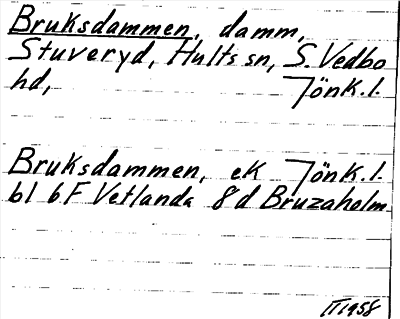 Bruksdammen, damm,
Stuveryd, Hults sn, S. Vedbo
hd, Jönk. l.
Bruksdammen, ek Jönk. l.
bl 6F Vetlanda 8d Bruzaholm
1958